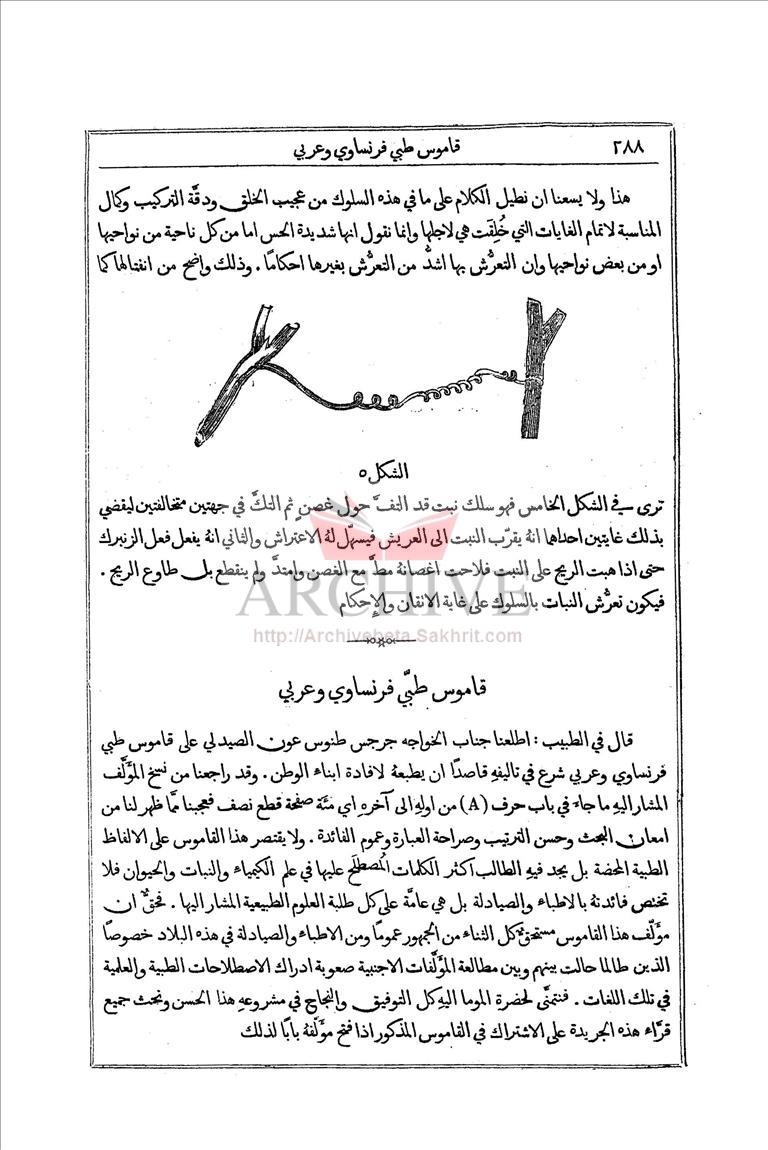 ٢٨٨
قاموس طبي فرنساوي وعربي
هذا ولا يسعنا ان نطيل الكلام على ما في هذه السلوك من عجيب الخلق ودقَّة التركيب وكمال
المناسبة لاتمام الغايات التي خُلِقَت هي لاجلها وانما نقول انها شديدة الحس اما من كل ناحية من نواحيها
او من بعض نواحيها وان التعرُّش بها اشدُّ من التعرُّش بغيرها احكامًا . وذلك واضح من انفتالها كما
الشكل ٥
ترى في الشكل الخامس فهو سلك نبت قد التفَّ حول غصنٍ ثم التكَّ في جهتين متخالفتين ليقضي
بذلك غايتين احداهما انهُ يقرّب النبت الى العريش فيسهّل لهُ الاعتراش والثاني انهُ يفعل فعل الزنبرك
حتى اذا هبت الريح على النبت فلاحت اغصانهُ مطَّ مع الغصن وامتدَّ ولم ينقطع بل طاوع الريح .
فيكون تعرُّش النبات بالسلوك على غاية الاتقان والإحكام
ARCHIVE
http://Archivebeta.Sakhrit.com
قاموس طبّي فرنساوي وعربي
قال في الطبيب : اطلعنا جناب الخواجه جرجس طنوس عون الصيدلي على قاموس طبي
فرنساوي وعربي شرع في تاليفهِ قاصدًا ان يطبعهُ لافادة ابناء الوطن . وقد راجعنا من نسخ المؤلَّف
المشار اليهِ ما جاءَ في باب حرف (A) من اولهِ الى آخرهِ اي مئة صفحة قطع نصف فعجبنا ممَّا ظهر لنا من
امعان البحث وحسن الترتيب وصراحة العبارة وعموم الفائدة . ولا يقتصر هذا القاموس على الالفاظ
الطبية المحضة بل يجد فيهِ الطالب اكثر الكلمات المُصطلَح عليها في علم الكيمياء والنبات والحيوان فلا
تختص فائدتهُ بالاطباء والصيادلة بل هي عامَّة على كل طلبة العلوم الطبيعية المشار اليها . فحقٌّ ان
مؤلّف هذا القاموس مستحقٌّ كل الثناء من الجمهور عمومًا ومن الاطباء والصيادلة في هذه البلاد خصوصًا
الذين طالما حالت بينهم وبين مطالعة المؤلَّفات الاجنبية صعوبة ادراك الاصطلاحات الطبية والعلمية
في تلك اللغات . فنتمنَّى لحضرة الموما اليهِ كل التوفيق والنجاح في مشروعهِ هذا الحسن ونحث جميع
قرَّاء هذه الجريدة على الاشتراك في القاموس المذكور اذا فتح مؤلّفهُ بابًا لذلك